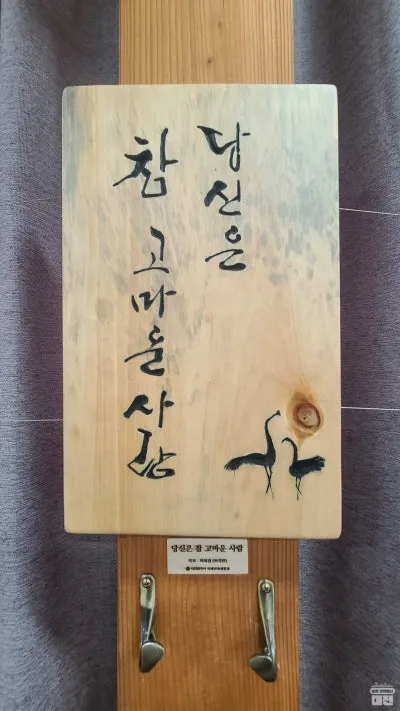 당신은
참 고마운 사람
당신은 참 고마운 사람
대전